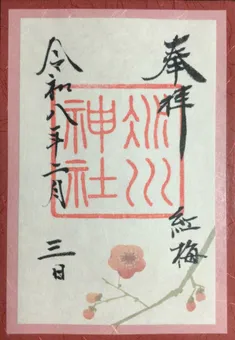 奉拝
紅梅
氷川
神社
令和八年二月
三日